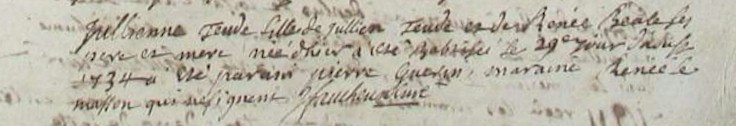 Jullienne Teude fille de Jullien Teude et de Renée Beale ses
pere et mere née d'hier a été Baptisée le 29e jour d'
1734 a été parain pierre Guerin, maraine Renée le
masson qui ne signent